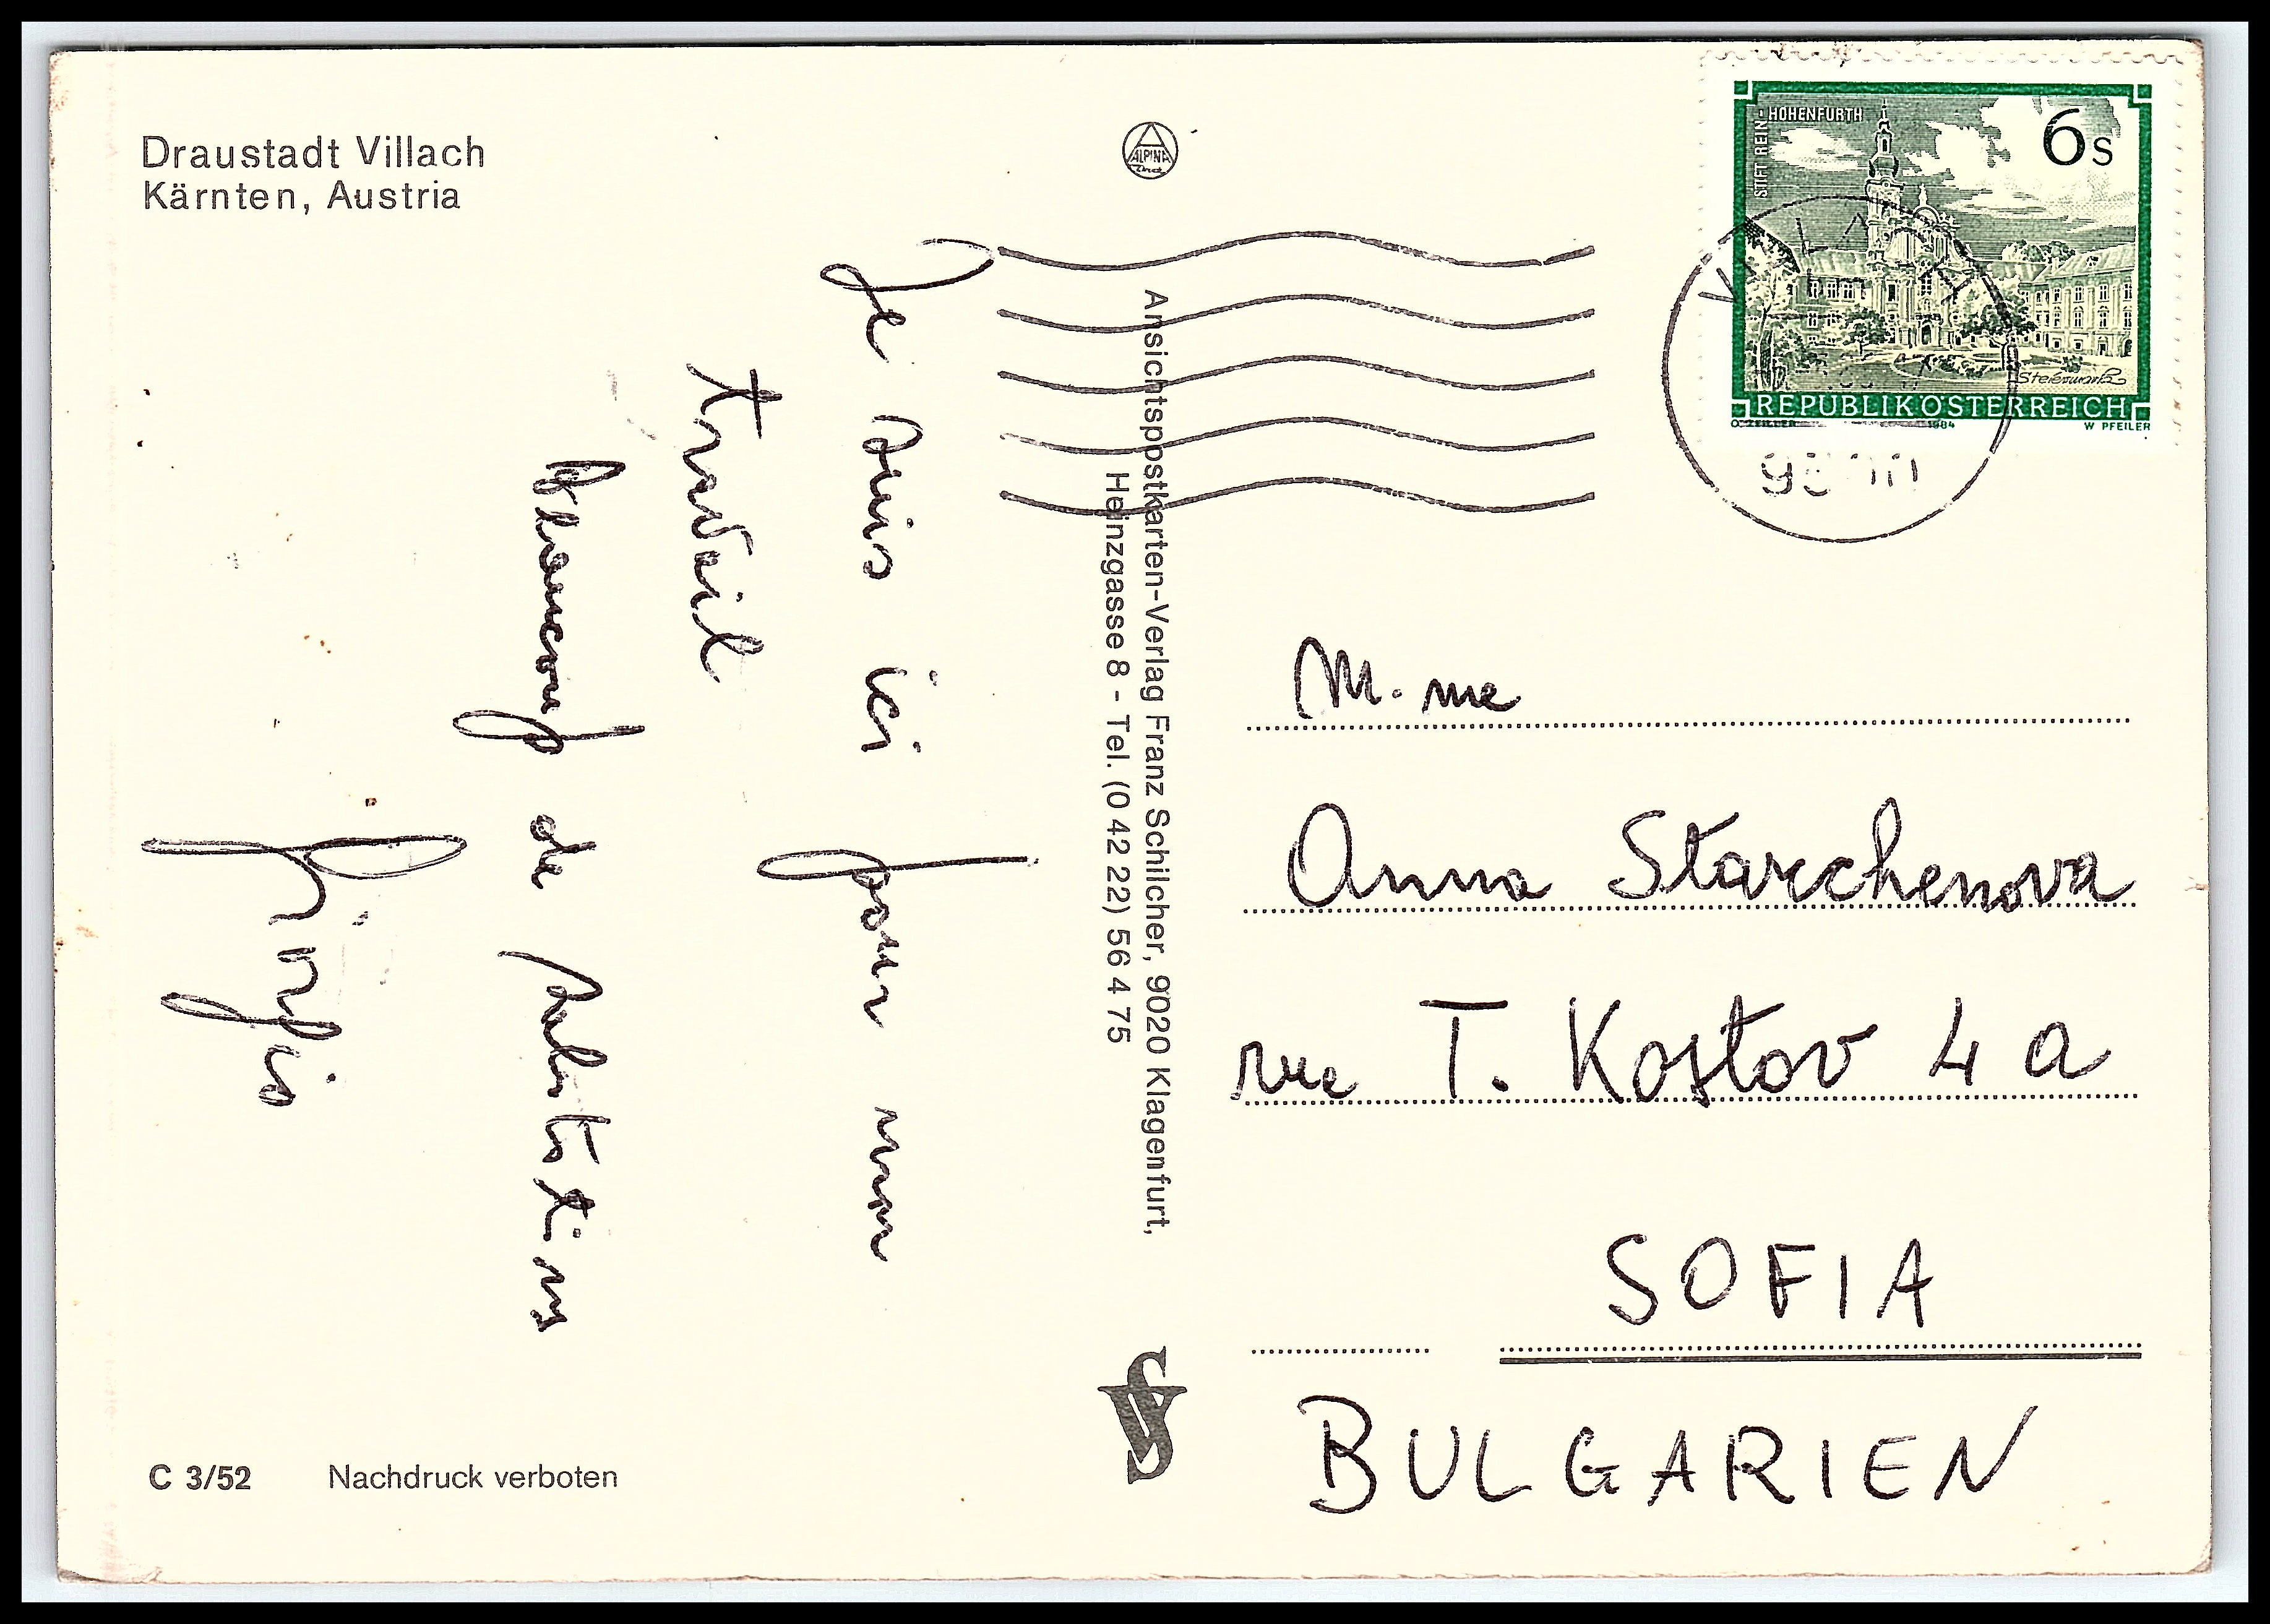 Draustadt Villach
Kärnten, Austria
ALPINA
Druck
Je suis ici pour mon
travail
Beaucoup de
C 3/52 Nachdruck verboten
Ansichtspostkarten-Verlag Franz Schilcher, 9020 Klagenfurt,
Heinzgasse 8 - Tel. (0 42 22) 56 4 75
STIFT REIN-HOHENFURTH
6s
Steiermark
REPUBLIK ÖSTERREICH
O. ZEILLER 1984 W. PFEILER
M.me
Anna Starchenova
rue T. Kostov 4 a
SOFIA
BULGARIEN